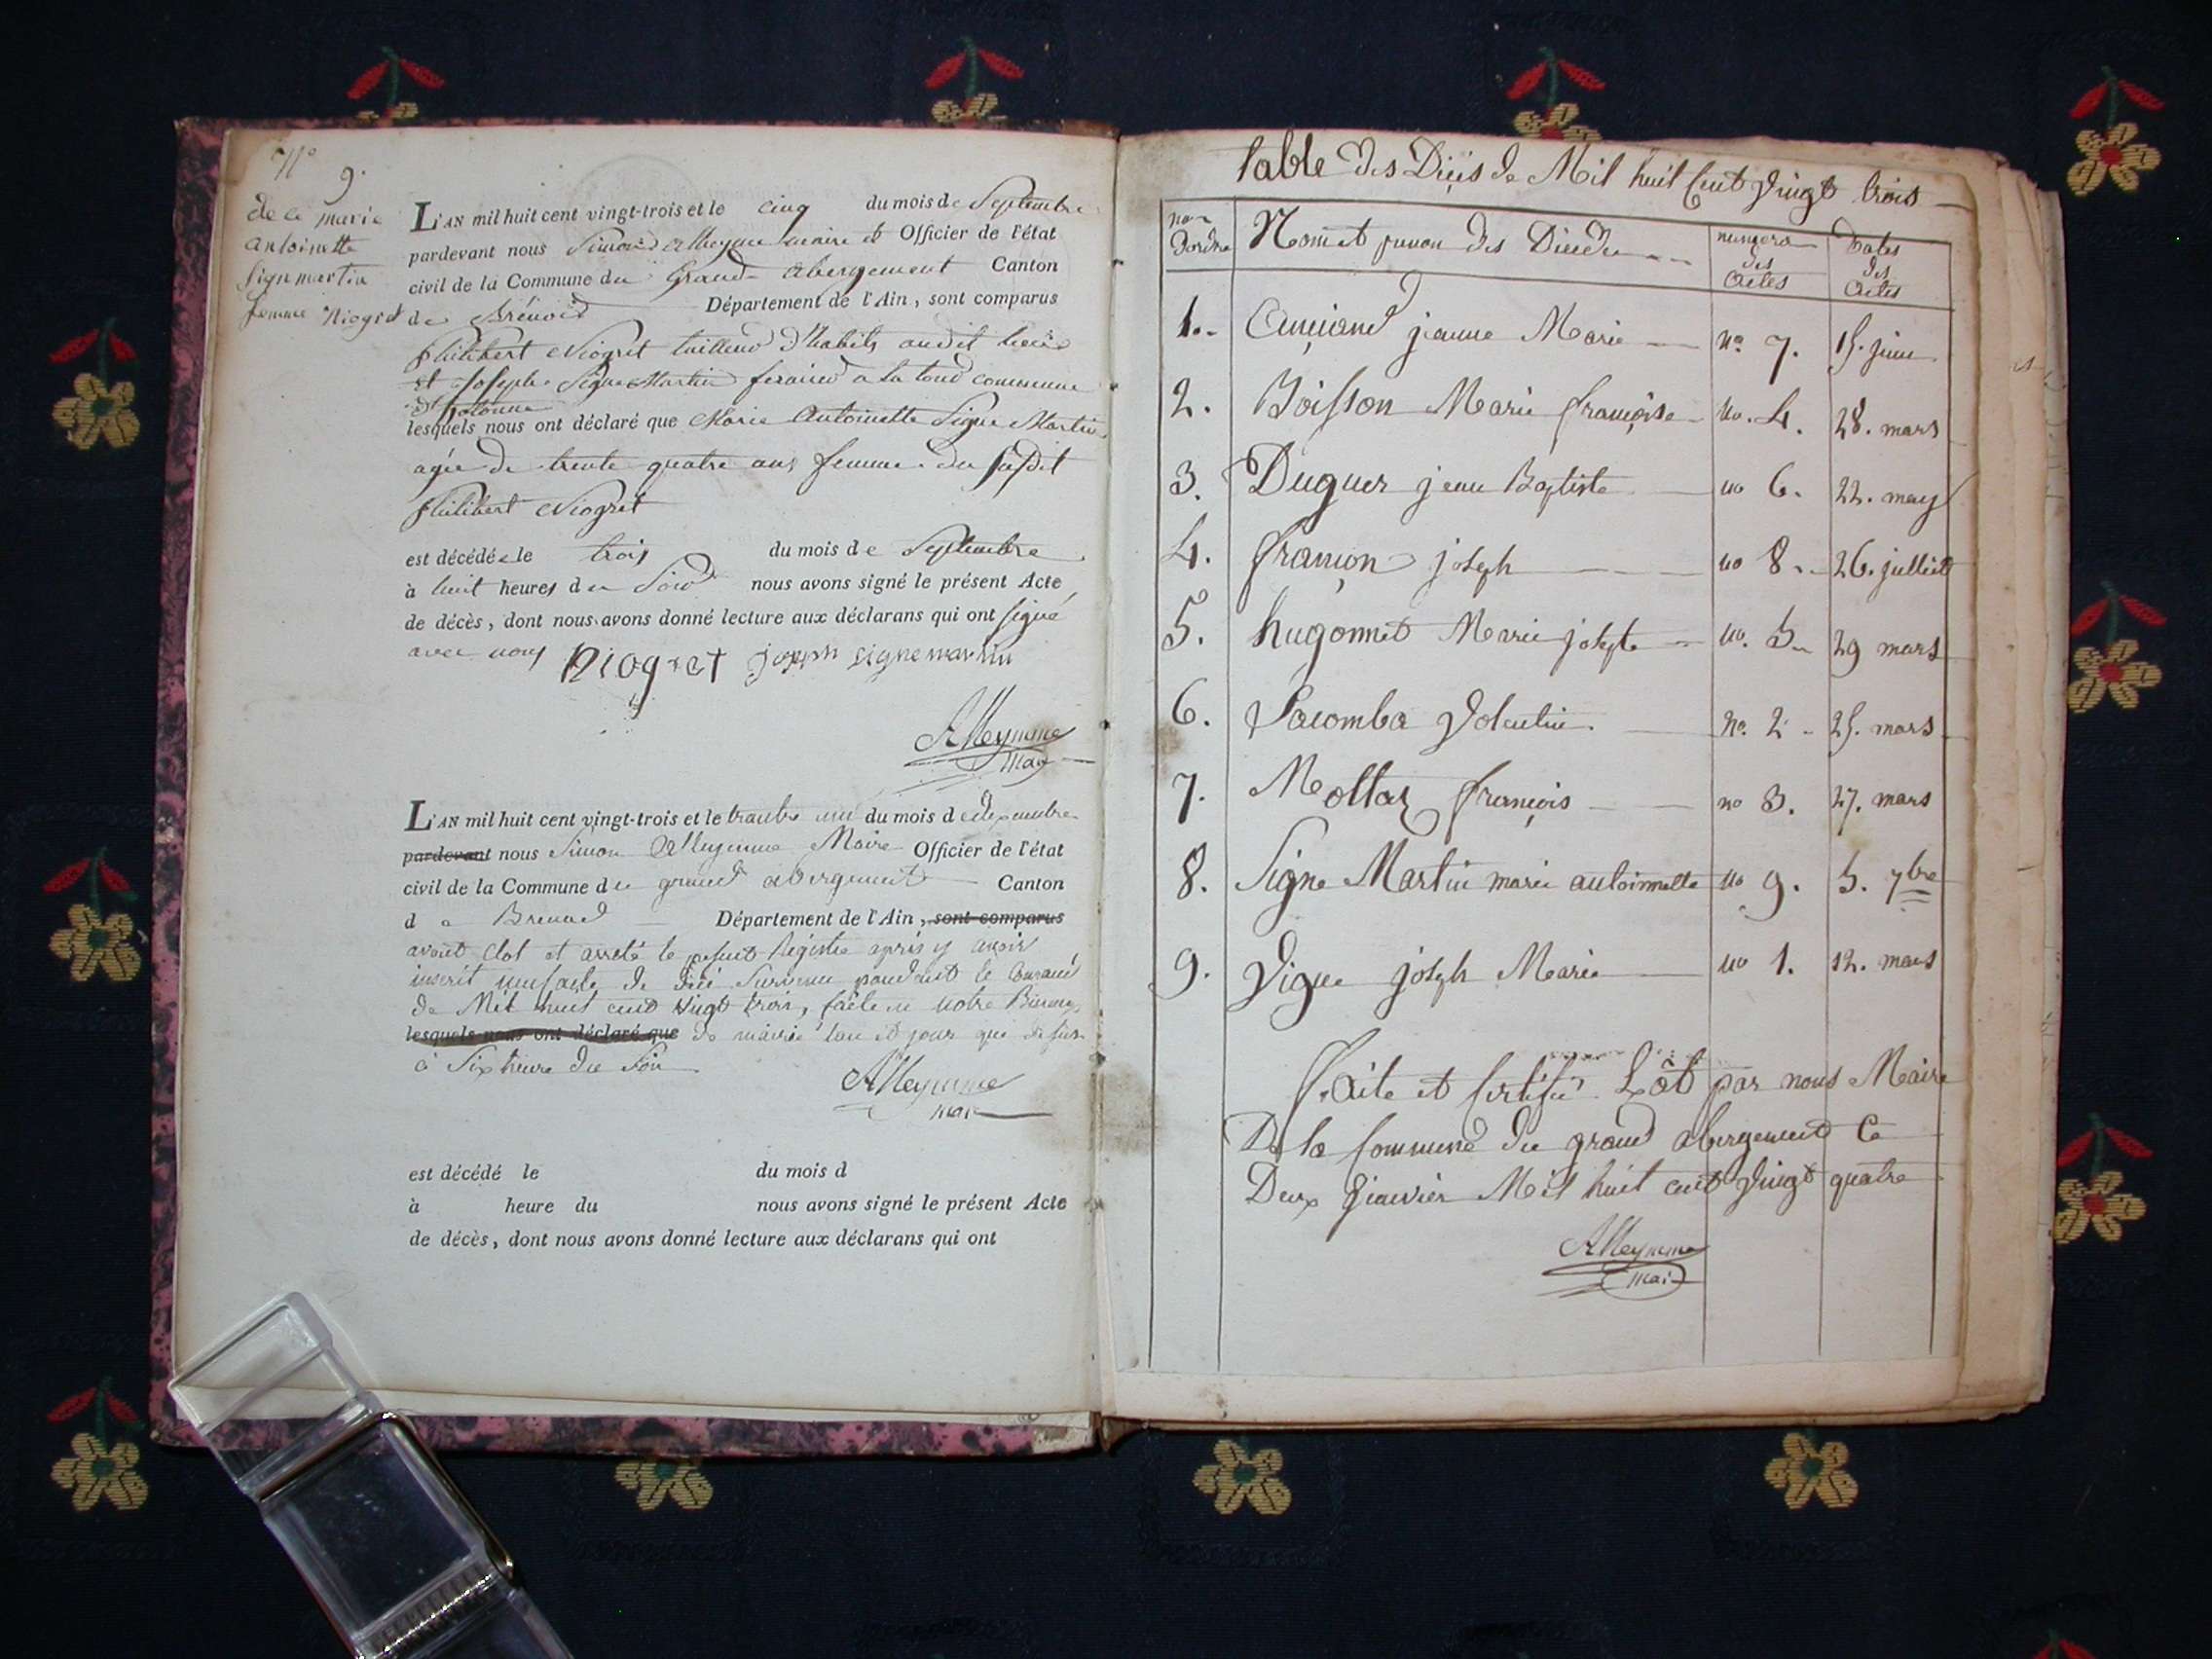 N° 9.
décé marie
antoinette
Signemartin
femme Niogret
L'AN mil huit cent vingt-trois et le cinq du mois de Septembre
pardevant nous Simon alleyme maire et Officier de l'état
civil de la Commune du Grand abergement Canton
de Brénod Département de l'Ain, sont comparus
philibert Niogret tailleur d'habits audit lieu
et Joseph Signe Martin
lesquels nous ont déclaré que Marie Antoinette Signe Martin
agée de trente quatre ans femme du susdit
philibert Niogret
est décédée le trois du mois de Septembre
à huit heures du Soir nous avons signé le présent Acte
de décès, dont nous avons donné lecture aux déclarans qui ont signé
avec nous Niogret joseph signemartin
Alleymme
mai
L'AN mil huit cent vingt-trois et le trantre un du mois de dexembre
pardevant nous Simon Alleymme Maire Officier de l'état
civil de la Commune du grand abergement Canton
de Brenod Département de l'Ain, sont comparus
avont clot et arreté le present Registre apris y avoir
inscrit neuf acte de décé Survenu pandant le Courant
de Mil huit cent vingt trois, faite notre Bureau
lesquels nous ont déclaré que de mairie l'an et jour que desus
à Six heure du Soir
Alleymme
mai
est décédé le du mois d
à heure du nous avons signé le présent Acte
de décès, dont nous avons donné lecture aux déclarans qui ont
table des Décés de Mil huit Cent Vingt trois
no dordre Nom et prenon des Décédés numero des actes Dates des actes
1. jeanne Marie no 7. 15. juin
2. Boisson Marie françoise no. 4. 28. mars
3. Duguer jean Baptiste no 6. 22. may
4. françon joseph no 8. 26. julliet
5. hugonnet Marie josephte no. 5 29 mars
6. Lacomba Valentin no. 2 25. mars
7. Mollaz françois no 3. 27. mars
8. Signe Martin marie antoinnette no 9. 5. 7bre
9. Vigne joseph Marie no 1. 12. mars
Faite et Certifié par nous Maire
De la Commune du grand abergement Ce
Deux Janvier Mil huit cent Vingt quatre
Alleymme
mai